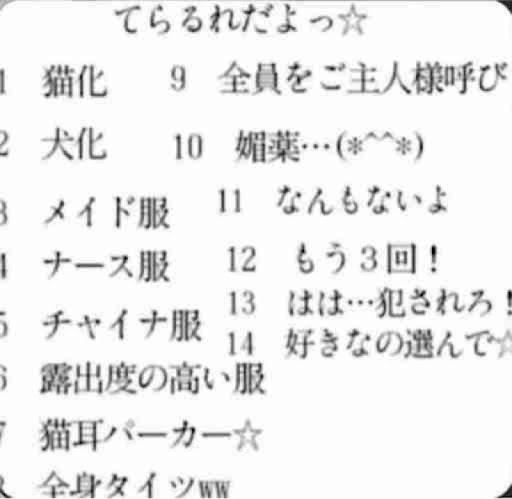 てらるれだよっ☆
1 猫化
2 犬化
3 メイド服
4 ナース服
5 チャイナ服
6 露出度の高い服
7 猫耳パーカー☆
8 全身タイツww
9 全員をご主人様呼び
10 媚薬…(*^^*)
11 なんもないよ
12 もう3回!
13 はは…犯されろ!
14 好きなの選んで☆